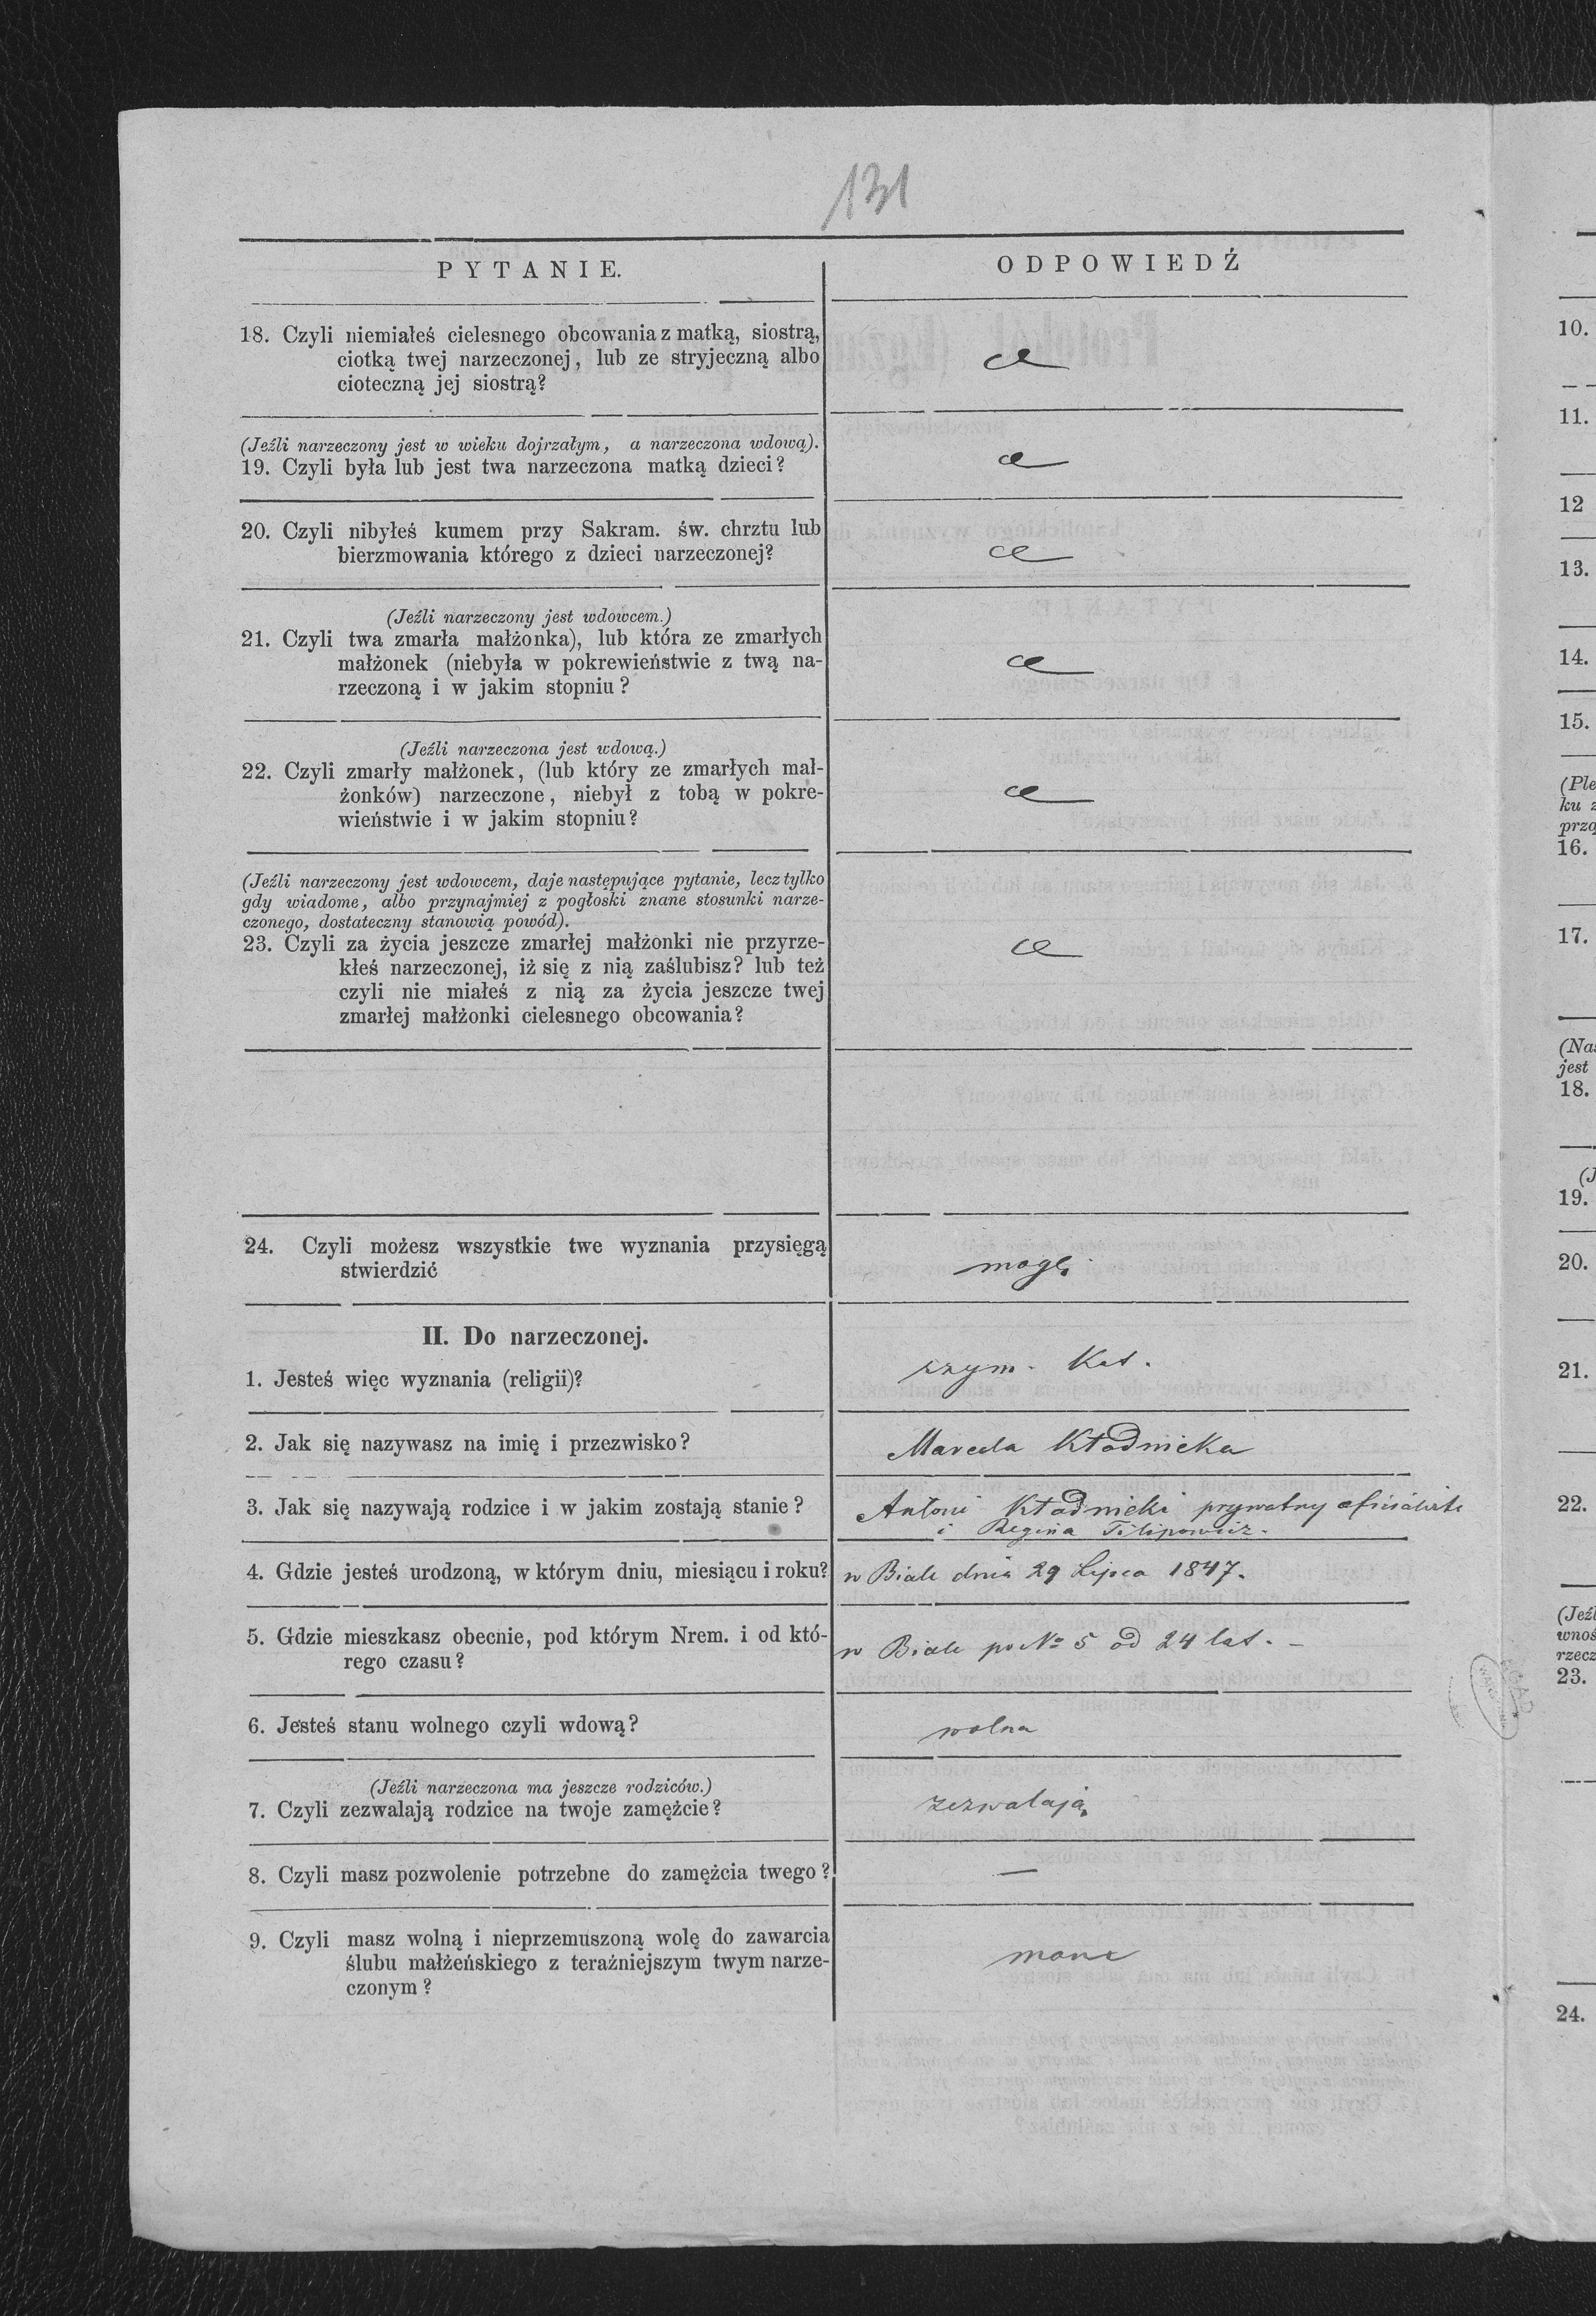 131
PYTANIE.
ODPOWIEDŹ
18. Czyli niemiałeś cielesnego obcowania z matką, siostrą,
ciotką twej narzeczonej, lub ze stryjeczną albo
cioteczną jej siostrą?
(Jeźli narzeczony jest w wieku dojrzałym, a narzeczona wdową).
19. Czyli była lub jest twa narzeczona matką dzieci?
20. Czyli nibyłeś kumem przy Sakram. św. chrztu lub
bierzmowania którego z dzieci narzeczonej?
(Jeźli narzeczony jest wdowcem.)
21. Czyli twa zmarła małżonka), lub która ze zmarłych
małżonek (niebyła w pokrewieństwie z twą na-
rzeczoną i w jakim stopniu?
(Jeźli narzeczona jest wdową.)
22. Czyli zmarły małżonek, (lub który ze zmarłych mał-
żonków) narzeczone, niebył z tobą w pokre-
wieństwie i w jakim stopniu?
(Jeźli narzeczony jest wdowcem, daje następujące pytanie, lecz tylko
gdy wiadome, albo przynajmiej z pogłoski znane stosunki narze-
czonego, dostateczny stanowią powód).
23. Czyli za życia jeszcze zmarłej małżonki nie przyrze-
kłeś narzeczonej, iż się z nią zaślubisz? lub też
czyli nie miałeś z nią za życia jeszcze twej
zmarłej małżonki cielesnego obcowania?
24. Czyli możesz wszystkie twe wyznania przysięgą
stwierdzić
mogę
II. Do narzeczonej.
1. Jesteś więc wyznania (religii)?
rzym. Kat.
2. Jak się nazywasz na imię i przezwisko?
Marcela Kłodnicka
3. Jak się nazywają rodzice i w jakim zostają stanie?
Antoni Kłodnicki prywatny
i Regina Filipowicz.
4. Gdzie jesteś urodzoną, w którym dniu, miesiącu i roku?
w Biale dnia 29 Lipca 1847.
5. Gdzie mieszkasz obecnie, pod którym Nrem. i od któ-
rego czasu?
w Biale po No 5 od 24 lat. –
6. Jesteś stanu wolnego czyli wdową?
wolna
(Jeźli narzeczona ma jeszcze rodziców.)
7. Czyli zezwalają rodzice na twoje zamężcie?
zezwalają
8. Czyli masz pozwolenie potrzebne do zamężcia twego?
—
9. Czyli masz wolną i nieprzemuszoną wolę do zawarcia
ślubu małżeńskiego z teraźniejszym twym narze-
czonym?
10.
11.
12
13.
14.
15.
(Ple
ku z
przą
16.
17.
(Na
jest
18.
(J
19.
20.
21.
22.
(Jeźl
wnoś
rzecz
23.
24.